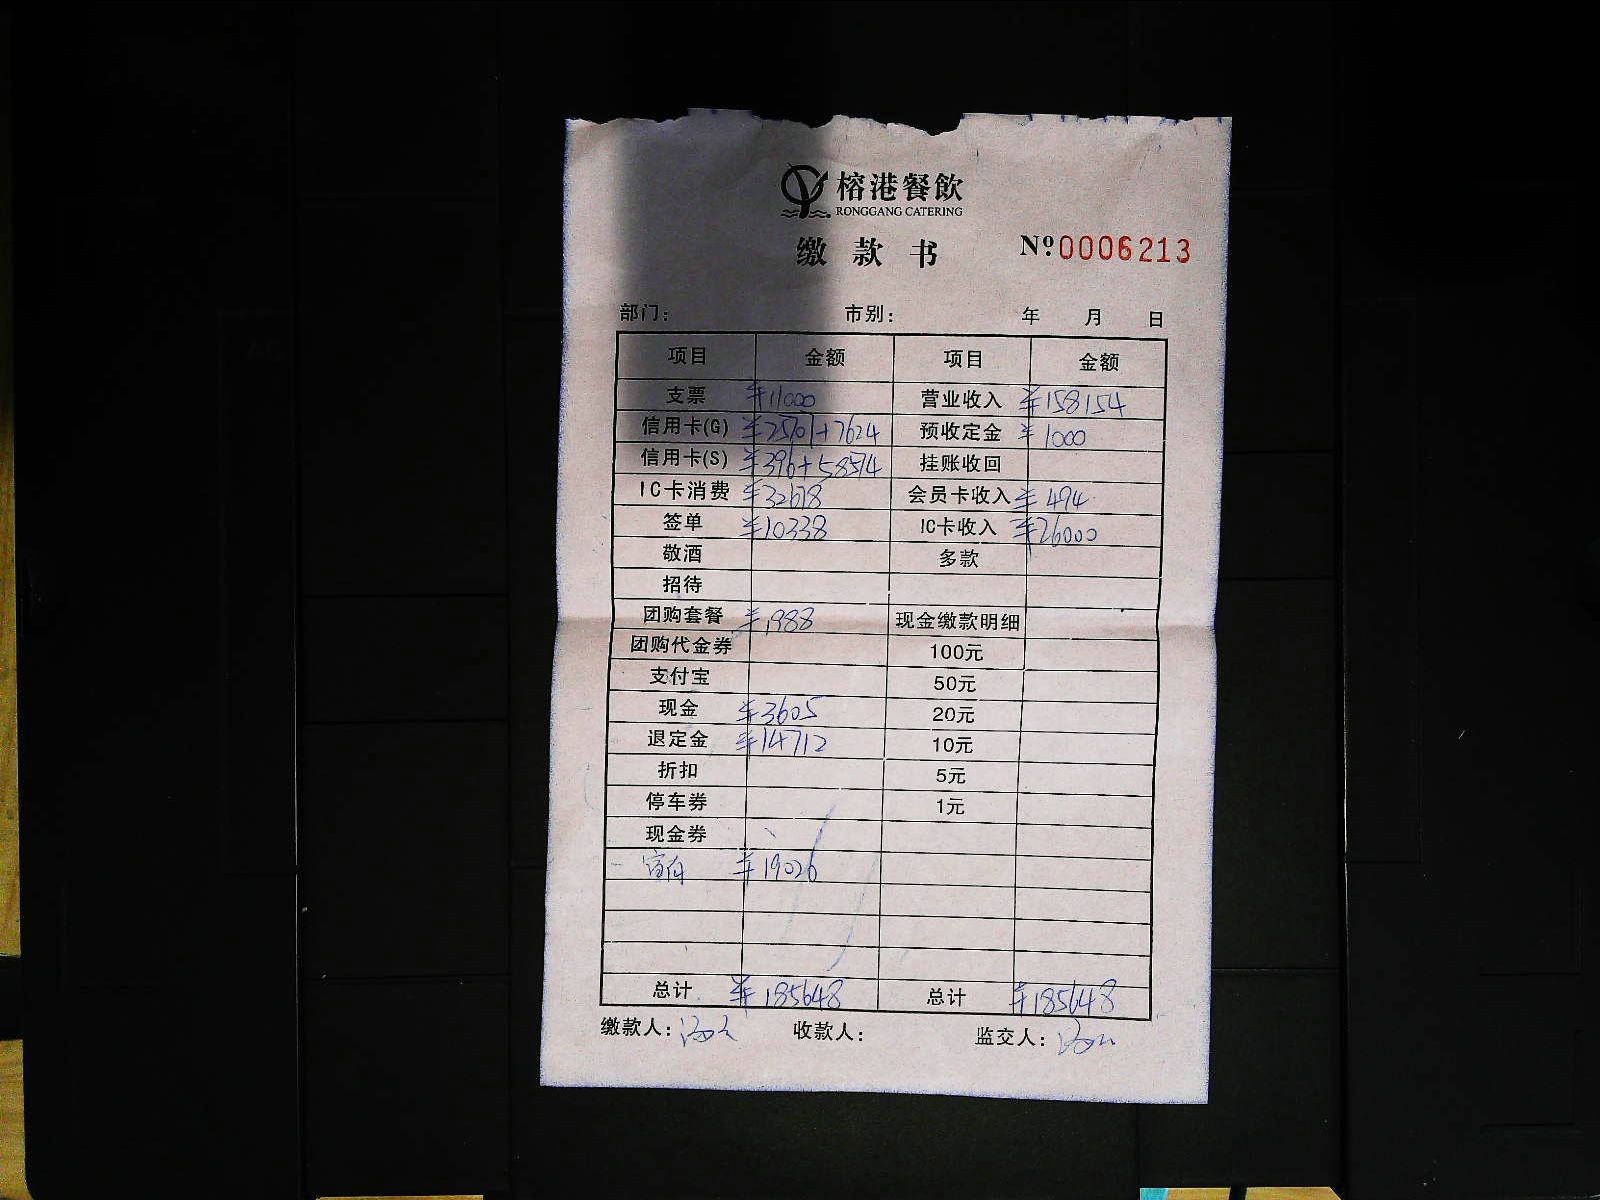 榕港餐飲
RONGGANG CATERING
缴款书
Nº 0006213
部门： 市别： 年 月 日
项目 金额 项目 金额
支票 ¥11000 营业收入 ¥158154
信用卡(G) ¥25707+7624 预收定金 ¥1000
信用卡(S) ¥396+58574 挂账收回
IC卡消费 ¥32678 会员卡收入 ¥494
签单 ¥10338 IC卡收入 ¥26000
敬酒 多款
招待
团购套餐 ¥1988 现金缴款明细
团购代金券 100元
支付宝 50元
现金 ¥3605 20元
退定金 ¥14712 10元
折扣 5元
停车券 1元
现金券
¥19026
总计 ¥185648 总计 ¥185648
缴款人： 收款人： 监交人：